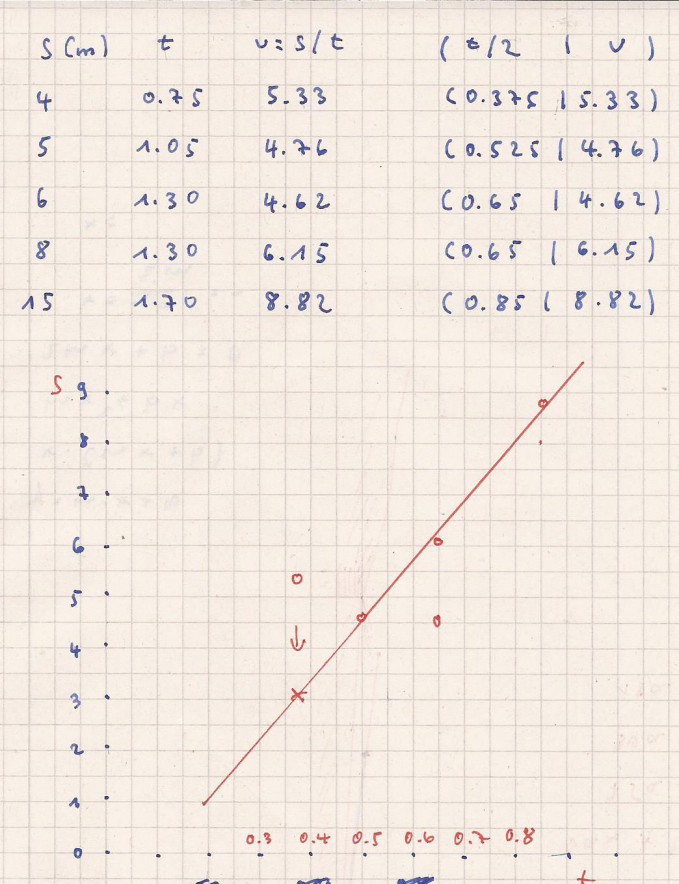 S (m) t v = s/t ( t/2 | v )
4 0.75 5.33 (0.375 | 5.33)
5 1.05 4.76 (0.525 | 4.76)
6 1.30 4.62 (0.65 | 4.62)
8 1.30 6.15 (0.65 | 6.15)
15 1.70 8.82 (0.85 | 8.82)
S 9
8
7
6
5
4
3
2
1
0.3 0.4 0.5 0.6 0.7 0.8
0
t